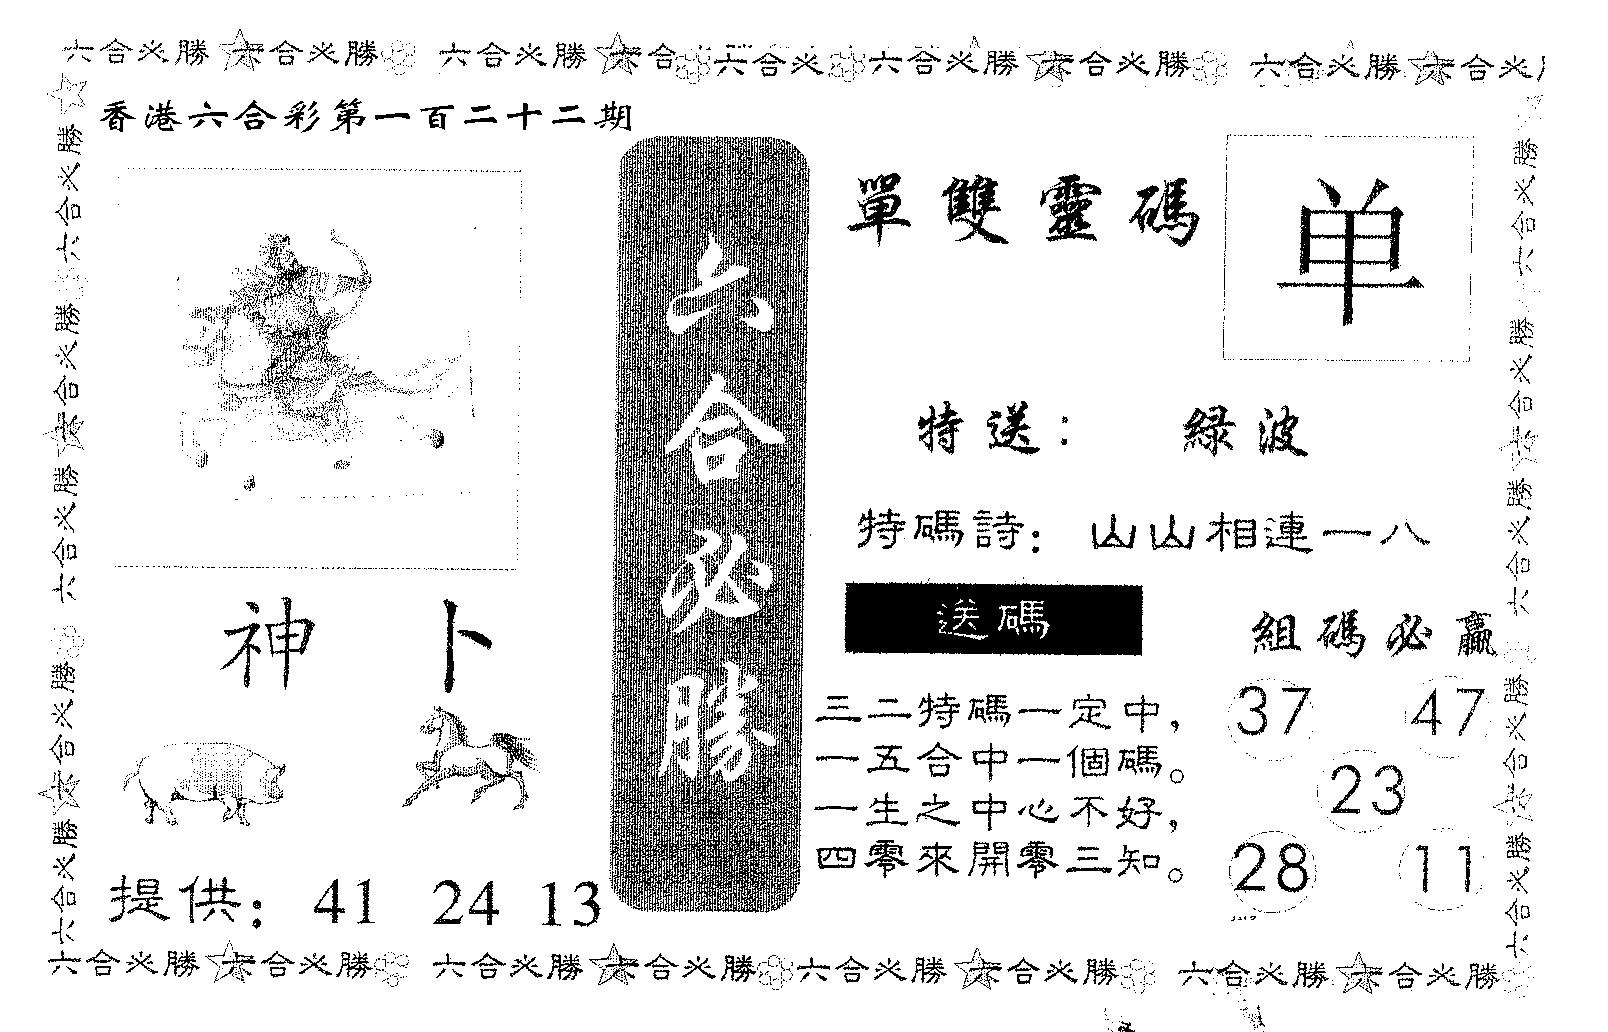 六合必勝 六合必勝 六合必勝 六合 六合必 六合必勝 六合必勝 六合必勝 六合必
香港六合彩第一百二十二期
六合必勝
單雙靈碼
单
特送： 緑波
特碼詩：山山相連一八
送碼
三二特碼一定中，
一五合中一個碼。
一生之中心不好，
四零來開零三知。
組碼必贏
37 47
23
28 11
神 卜
提供：41 24 13
六合必勝 六合必勝 六合必勝 六合必勝
六合必勝 六合必勝 六合必勝 六合必勝
六合必勝 六合必勝 六合必勝 六合必勝 六合必勝 六合必勝 六合必勝 六合必勝